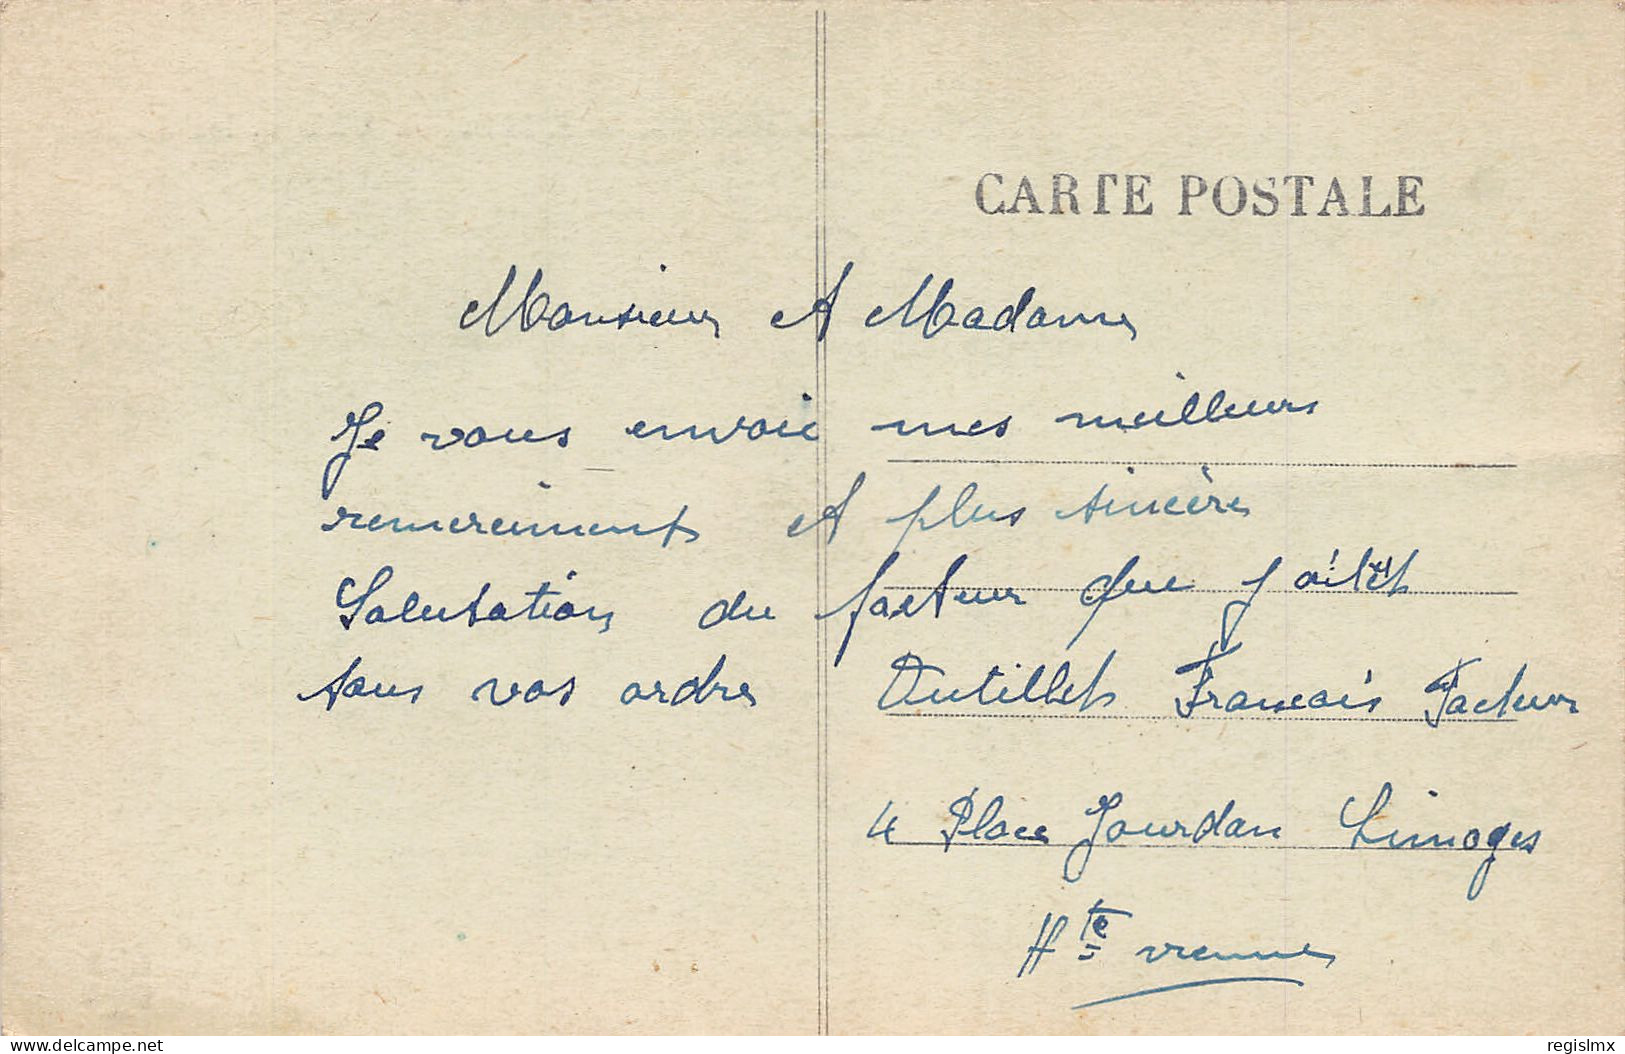 CARTE POSTALE
Monsieur et Madame
Je vous envoie mes meilleurs
remerciment et plus sincère
Salutation du facteur que j'
sous vos ordre
Outillet Francais Facteur
4 Place Jourdan Limoges
Hte vienne
delcampe.net
regislmx